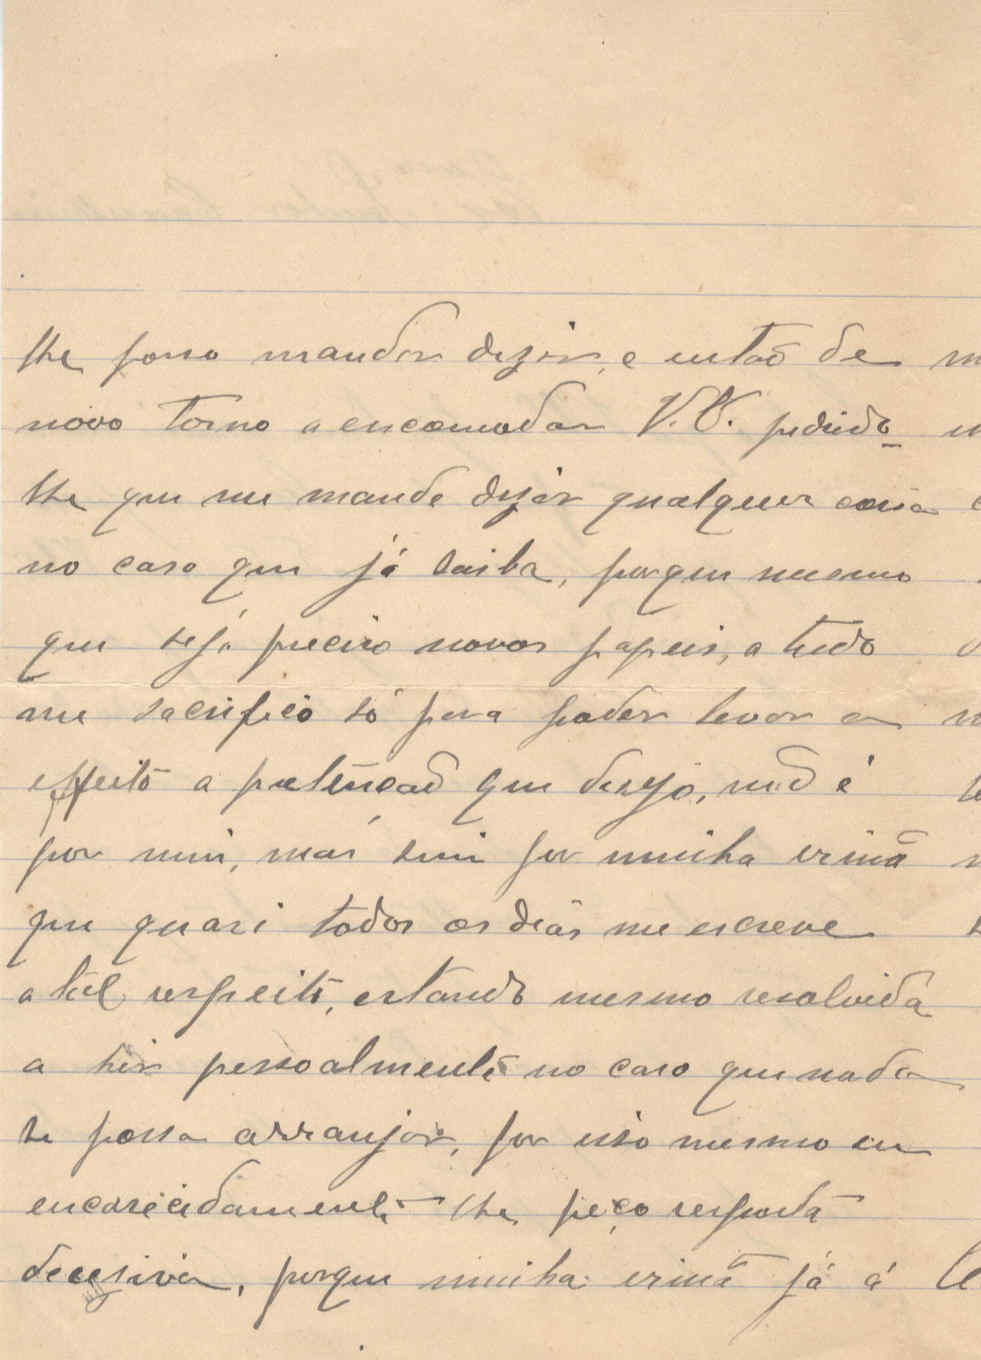 lhe posso mandar dizer, e então de
novo torno a encomodar V. E. pedindo
lhe que me mande dizer qualquer coisa
no caso que já saiba, porque mesmo
que seja preciso novos papeis, a tudo
me sacrifico só para poder levar a
effeito a pretenção que desejo, não é
por mim, mas sim por minha irmã
que quasi todos os dias me escreve
a tal respeito, estando mesmo resolvida
a hir pessoalmente no caso que nada
se possa arranjar, por isso mesmo eu
encarecidamente lhe peço resposta
decesiva, porque minha irmã já á